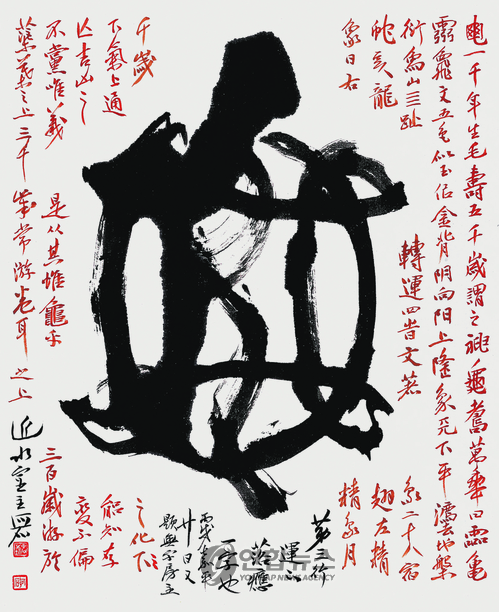 龜一千年生毛壽五千歲謂之神龜萬年曰靈龜
靈龜文五色似玉似金背陰向陽上隆象天下平法地槃
衍象山三趾
轉運四時文著
象二十八宿
龍
翅左精
象日右
精象月
千歲
之化下
下氣上通
能知存
亡吉凶之
變不偏
不黨唯義
是從其惟龜乎
三百歲游於
之上三千歲常游卷耳之上
第三行
運
落應
一字也
廿日又
近水室主
연합뉴스
YONHAP NEWS AGENCY